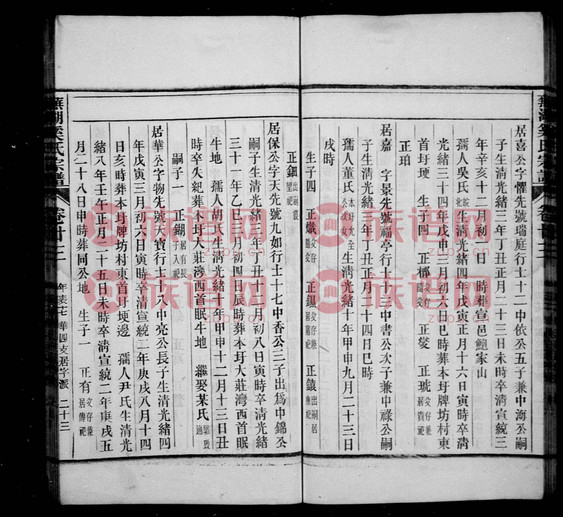 居喜公字懼先號瑞庭行士十二中依公五子兼中海公嗣
生清光緒三年丁丑正月二十三日未時卒清宣統三
年辛亥十二月初一日 時葬宣邑鮑家山
孺人吳氏 生清光緒四年戊寅正月十六日寅時卒清
光緒三十四年戊申三月初六日巳時葬本圩坊村東
首圩埂 生子四 正榔 正燮 正琥
正珀
居嘉 字景先號福亭行士十三中書公次子兼中祿公嗣
生清光緒三年丁丑正月二十四日巳時
孺人董氏 生清光緒十年甲申九月二十三日
戌時
生子四 正熾 正鍚 正鐵 出嗣居
正鈿 出嗣
居保公字天先號九如行士十七中香公三子出爲中錦公
嗣子生清光緒三年丁丑十二月初八日寅時卒清光緒
三十一年乙巳二月初四日辰時葬本圩大莊灣西首眠
牛地 孺人胡氏生清光緒十年甲申十二月十三日丑
時卒失紀葬本圩大莊灣西首眠牛地 繼娶某氏
嗣子一 正錫 居有長子入祀
居華公字物先號天寶行士十八中亮公長子生清光緒四
年戊寅三月初六日寅時卒清宣統二年庚戌八月十四
日亥時葬本圩牌坊村東首圩埂邊 孺人尹氏生清光
緒八年壬午正月二十五日未時卒清宣統二年庚戌五
月二十八日申時葬同公地 生子一 正有
蕪湖
氏宗譜
卷廿三
年表七 華四支居字派 二十三